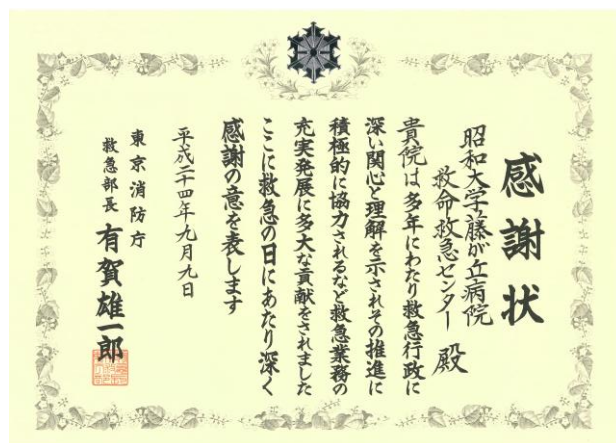 感謝状
昭和大学藤が丘病院
救命救急センター 殿
貴院は多年にわたり救急行政に
深い関心と理解を示されその推進に
積極的に協力されるなど救急業務の
充実発展に多大な貢献をされました
ここに救急の日にあたり深く
感謝の意を表します
平成二十四年九月九日
東京消防庁
救急部長 有賀雄一郎